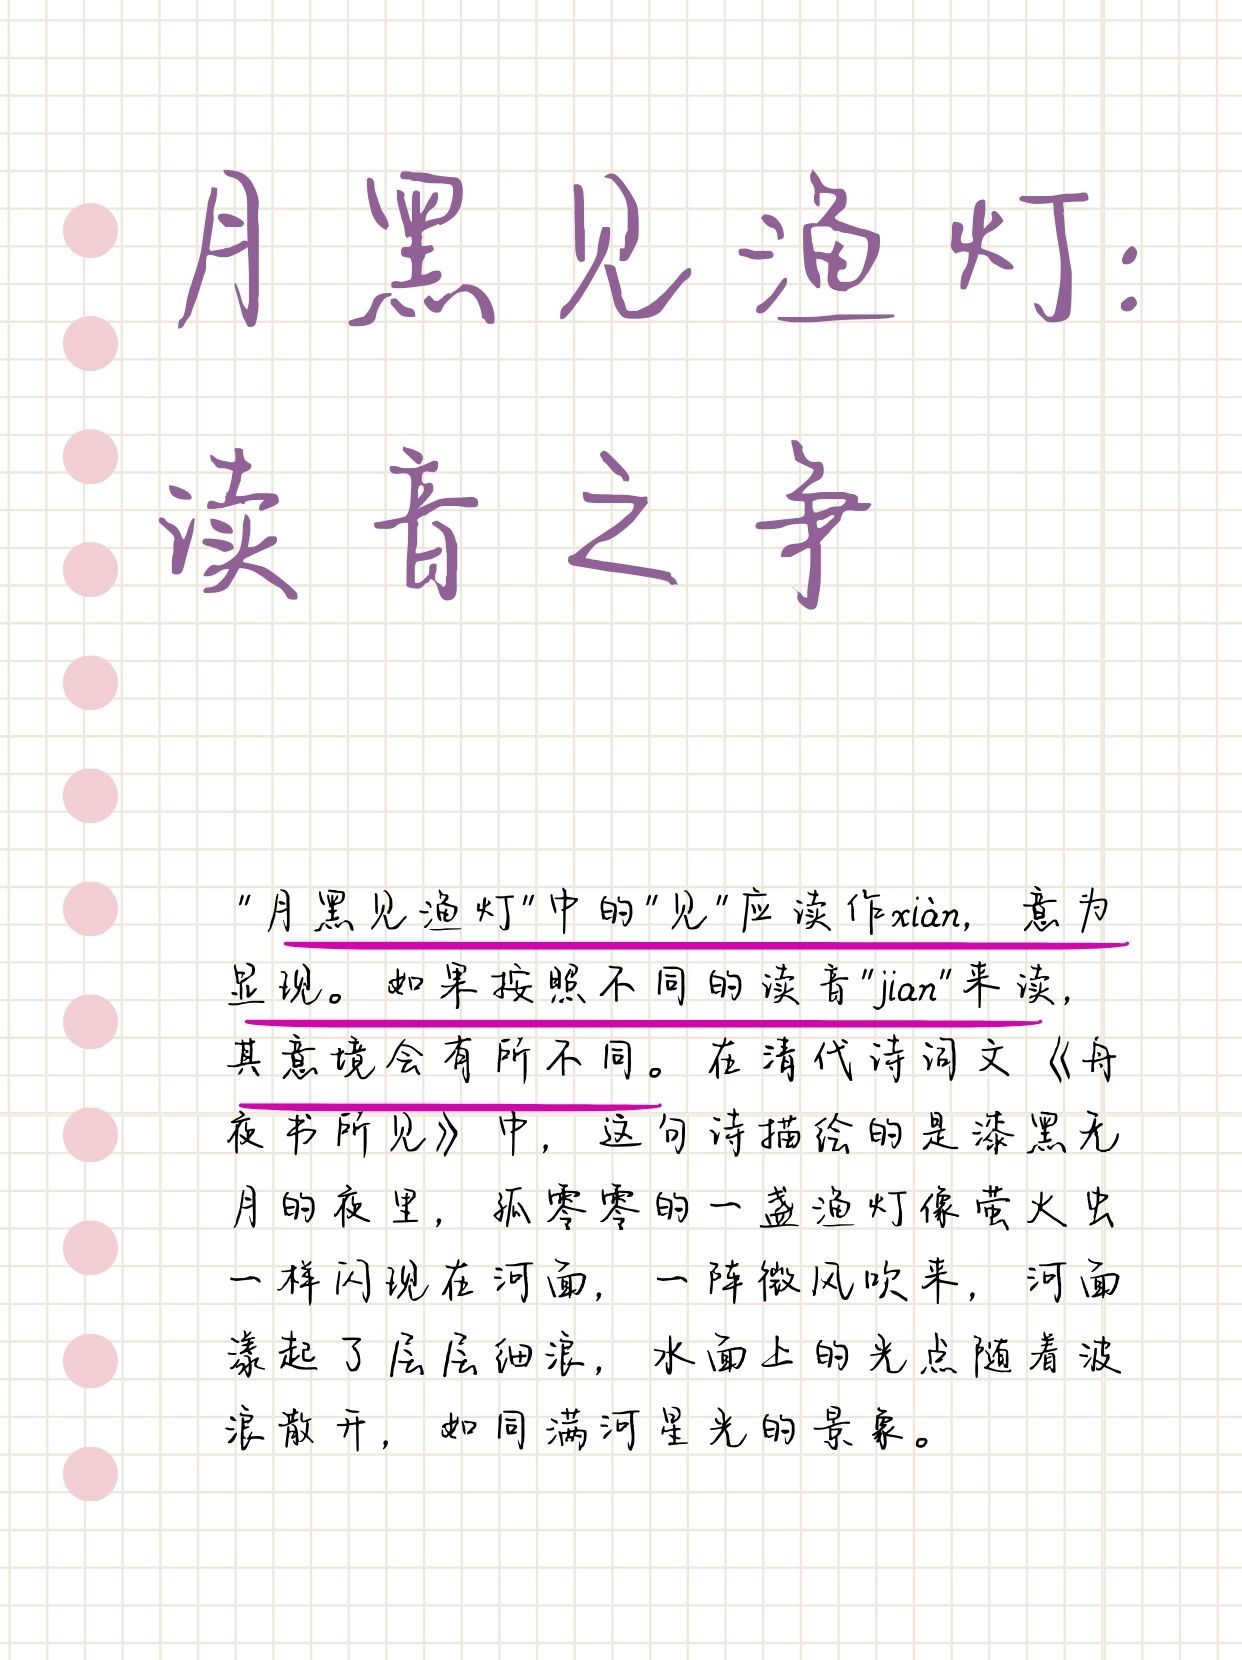 月黑见渔灯:
读音之争
"月黑见渔灯"中的"见"应读作xiàn,意为
显现。如果按照不同的读音"jian"来读,
其意境会有所不同。在清代诗词文《舟
夜书所见》中,这句诗描绘的是漆黑无
月的夜里,孤零零的一盏渔灯像萤火虫
一样闪现在河面,一阵微风吹来,河面
漾起了层层细浪,水面上的光点随着波
浪散开,如同满河星光的景象。